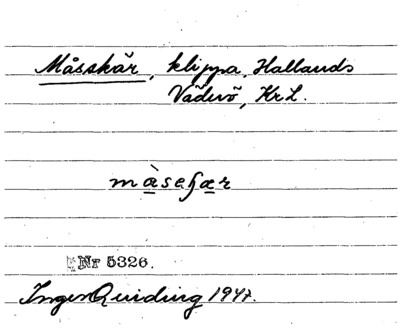 Måsskär, klippa, Hallands
Väderö, Kr L.
màseʃær
Nr 5326.
Inger Quiding 1947.